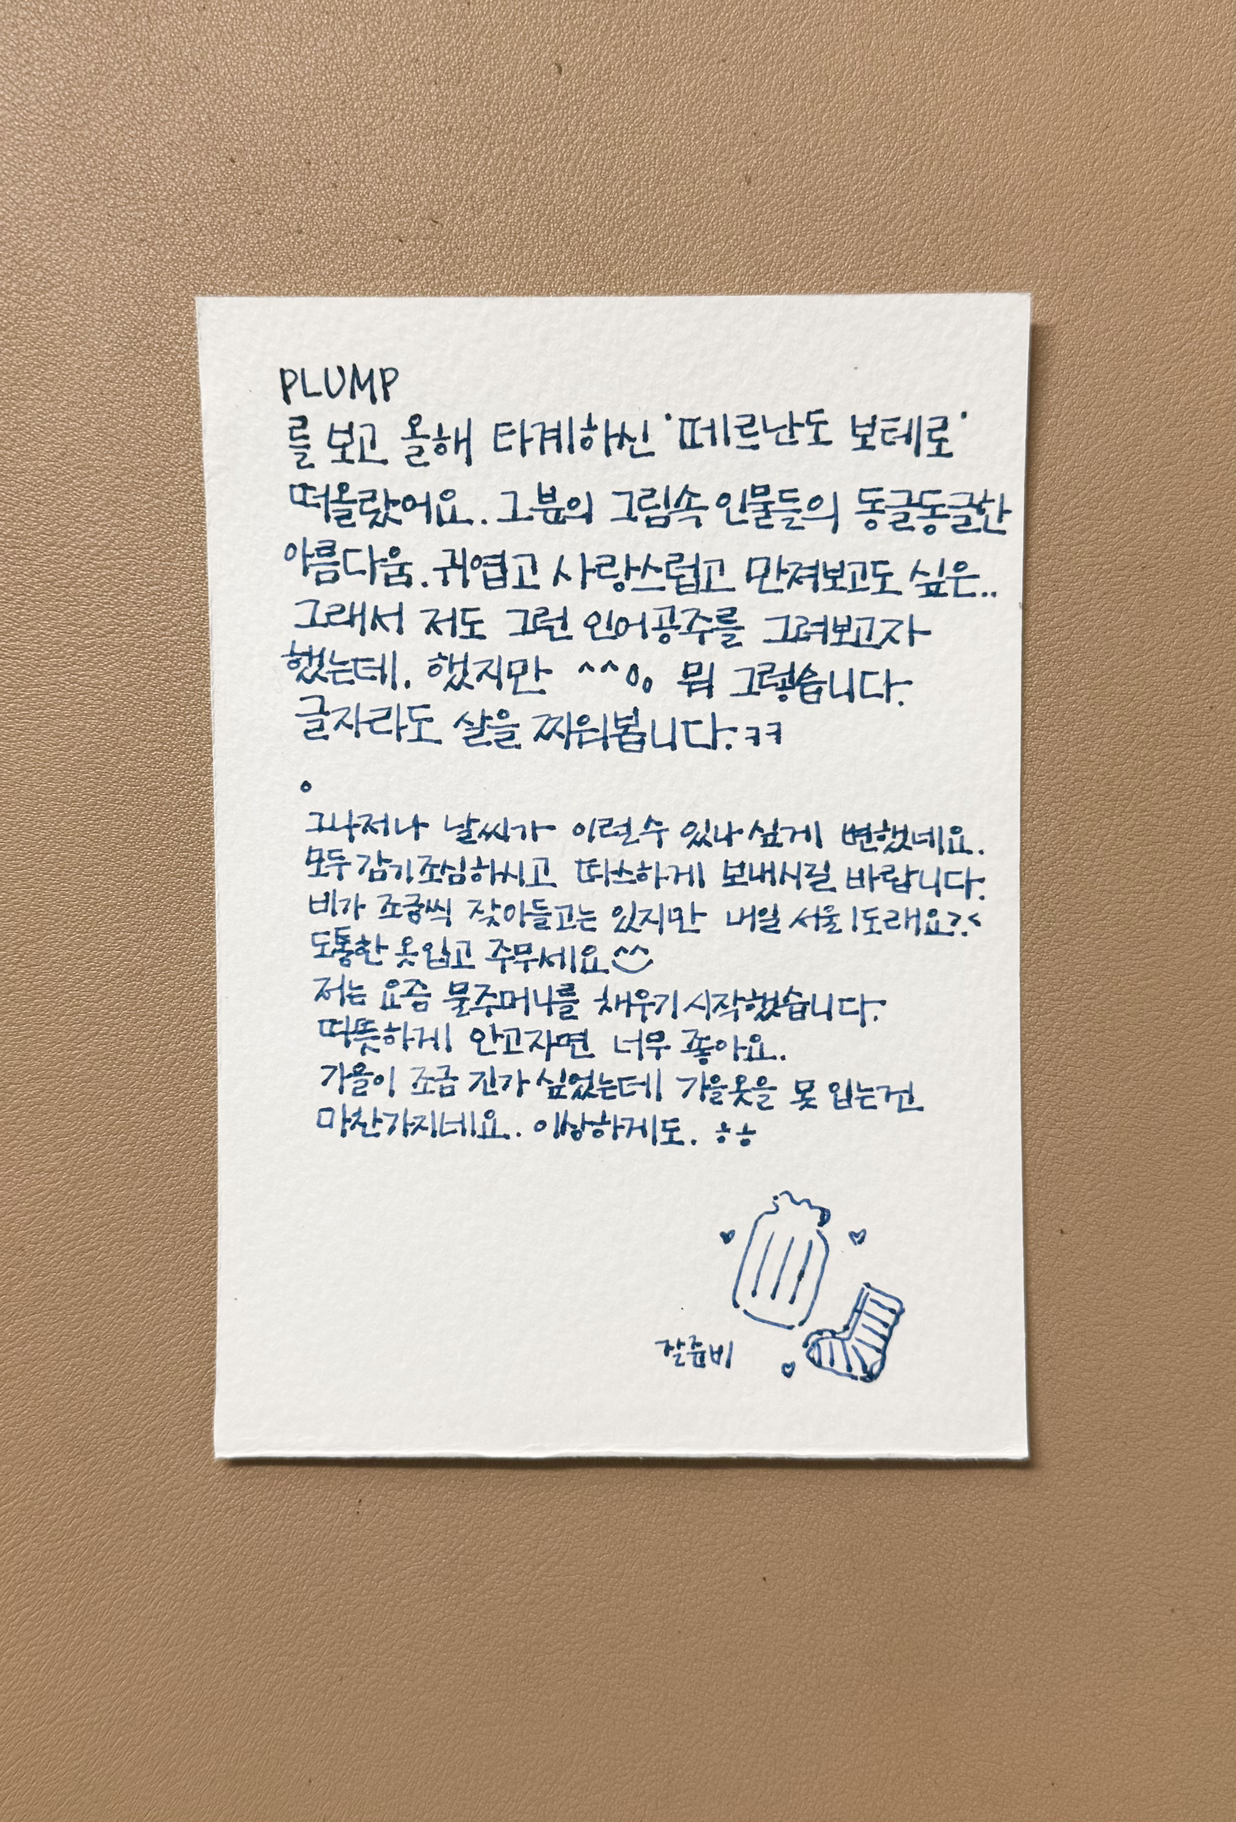 PLUMP
를 보고 올해 타계하신 '떼르난도 보테로'
떠올랐어요. 그분의 그림속 인물들의 동글동글한
아름다움. 귀엽고 사랑스럽고 만져보고도 싶은..
그래서 저도 그런 인어공주를 그려보고자
했는데. 했지만 ^^;; 뭐 그렇습니다.
글자라도 살을 찌워봅니다. ㅋㅋ
그나저나 날씨가 이럴수 있나 싶게 변했네요.
모두 감기조심하시고 따스하게 보내시길 바랍니다.
비가 조금씩 잦아들고는 있지만 내일 서울 1도래요?.<
도톰한 옷 입고 주무세요
저는 요즘 물주머니를 채우기 시작했습니다.
따뜻하게 안고자면 너무 좋아요.
가을이 조금 긴가 싶었는데 가을옷을 못 입는건
마찬가지네요. 이상하게도. ㅎㅎ
잘준비